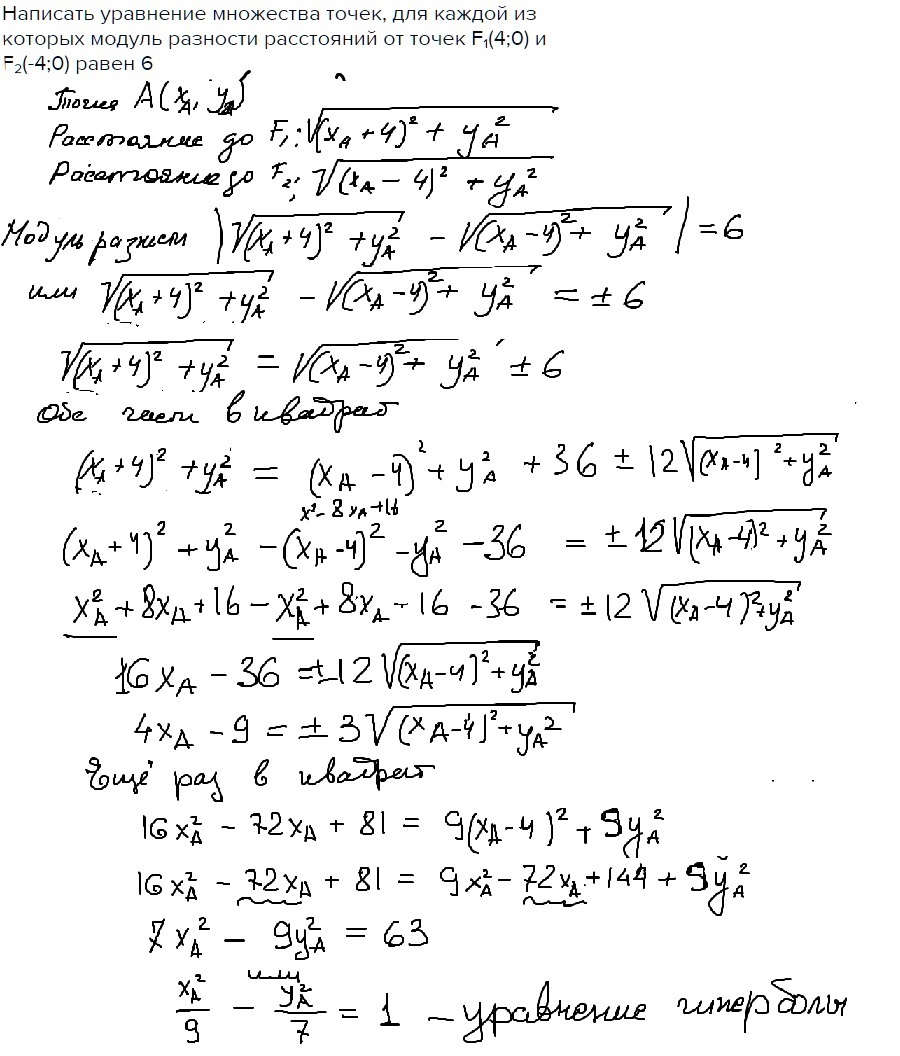 Написать уравнение множества точек, для каждой из
которых модуль разности расстояний от точек F₁(4;0) и
F₂(-4;0) равен 6
Точка A(x_A, y_A)
Расстояние до F₁: √((x_A + 4)² + y_A²)
Расстояние до F₂: √((x_A − 4)² + y_A²)
Модуль разност |√((x_A + 4)² + y_A²) − √((x_A − 4)² + y_A²)| = 6
или √((x_A + 4)² + y_A²) − √((x_A − 4)² + y_A²) = ± 6
√((x_A + 4)² + y_A²) = √((x_A − 4)² + y_A²) ± 6
Обе части в квадрат
(x_A + 4)² + y_A² = (x_A − 4)² + y_A² + 36 ± 12√((x_A − 4)² + y_A²)
x² − 8x_A + 16
(x_A + 4)² + y_A² − (x_A − 4)² − y_A² − 36 = ± 12√((x_A − 4)² + y_A²)
x_A² + 8x_A + 16 − x_A² + 8x_A − 16 − 36 = ± 12√((x_A − 4)² + y_A²)
16x_A − 36 = ± 12√((x_A − 4)² + y_A²)
4x_A − 9 = ± 3√((x_A − 4)² + y_A²)
Ещё раз в квадрат
16x_A² − 72x_A + 81 = 9(x_A − 4)² + 9y_A²
16x_A² − 72x_A + 81 = 9x_A² − 72x_A + 144 + 9y_A²
7x_A² − 9y_A² = 63
или
x_A²/9 − y_A²/7 = 1 – уравнение гиперболы